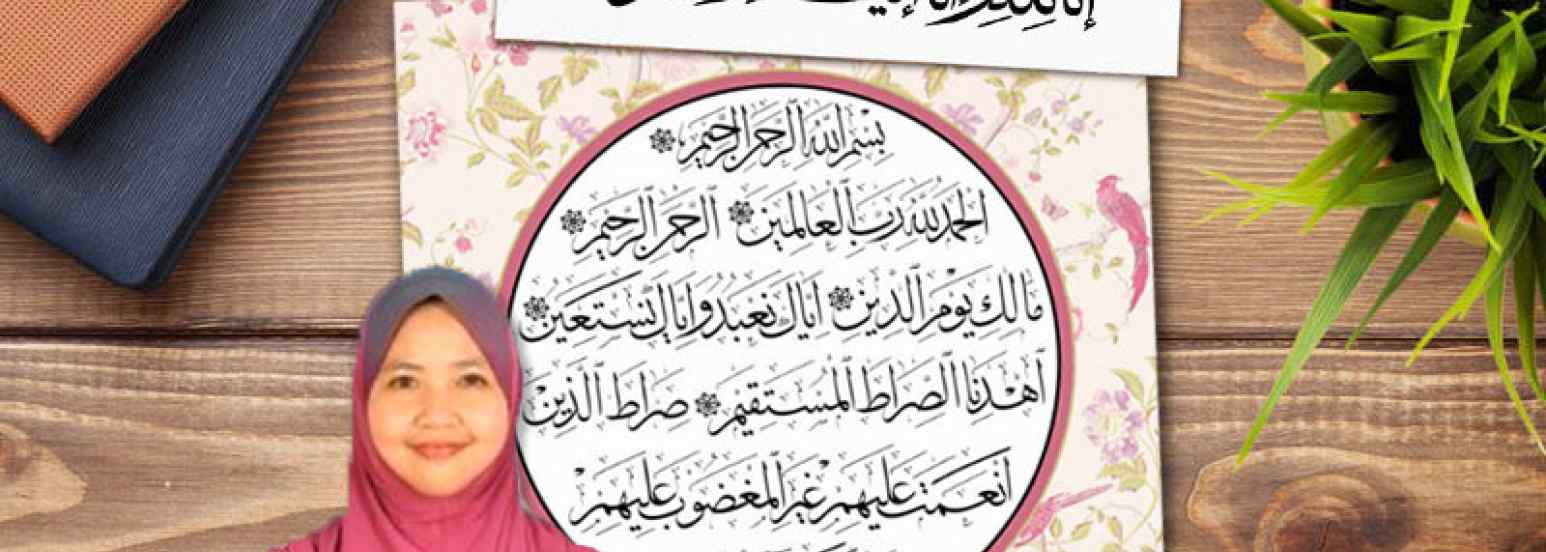 إنا لله وإنا إليه
بِسْمِ ٱللهِ ٱلرَّحْمٰنِ ٱلرَّحِيْمِ
الحَمْدُ لِلّٰهِ رَبِّ ٱلْعَالَمِيْنَ ٱلرَّحْمٰنِ ٱلرَّحِيْمِ
مَالِكِ يَوْمِ ٱلدِّيْنِ اِيَّاكَ نَعْبُدُ وَاِيَّاكَ نَسْتَعِيْنُ
ٱهْدِنَا ٱلصِّرَاطَ ٱلْمُسْتَقِيْمَ صِرَاطَ ٱلَّذِيْنَ
أَنْعَمْتَ عَلَيْهِمْ غَيْرِ ٱلْمَغْضُوْبِ عَلَيْهِمْ